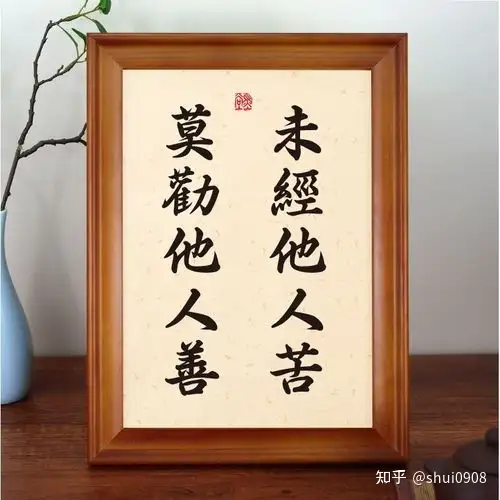 未經他人苦
莫勸他人善
知乎 @shui0908